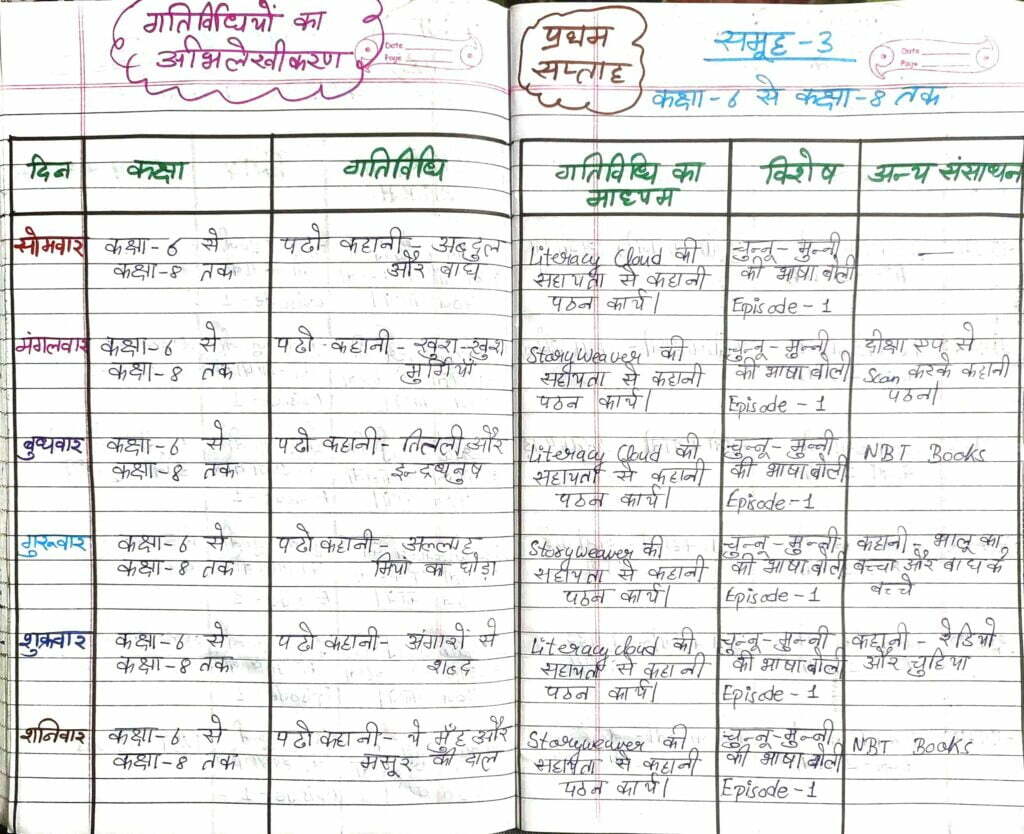 गतिविधियों का
अभिलेखीकरण
Date
Page
प्रथम
सप्ताह
समूह - 3
Date
Page
कक्षा - 6 से कक्षा - 8 तक
दिन कक्षा गतिविधि गतिविधि का विशेष अन्य संसाधन
माध्यम
सोमवार कक्षा - 6 से पढो कहानी - अबदुल Literacy Cloud की चुन्नू - मुन्नी —
कक्षा - 8 तक और बाघ सहायता से कहानी की भाषा बोली
पठन कार्य। Episode - 1
मंगलवार कक्षा - 6 से पढो कहानी - खुश - खुश StoryWeaver की चुन्नू - मुन्नी दीक्षा एप से
कक्षा - 8 तक मुर्गियाँ सहायता से कहानी की भाषा बोली Scan करके कहानी
पठन कार्य। Episode - 1 पठन।
बुधवार कक्षा - 6 से पढो कहानी - तितली और Literacy Cloud की चुन्नू - मुन्नी NBT Books
कक्षा - 8 तक इन्द्रधनुष सहायता से कहानी की भाषा बोली
पठन कार्य। Episode - 1
गुरूवार कक्षा - 6 से पढो कहानी - अल्लाह StoryWeaver की चुन्नू - मुन्नी कहानी - भालू का
कक्षा - 8 तक मियाँ का घोड़ा सहायता से कहानी की भाषा बोली बच्चा और बाघ के
पठन कार्य। Episode - 1 बच्चे
शुक्रवार कक्षा - 6 से पढो कहानी - अंगारों से Literacy Cloud की चुन्नू - मुन्नी कहानी - रेडियो
कक्षा - 8 तक शब्द सहायता से कहानी की भाषा बोली और चुहिया
पठन कार्य। Episode - 1
शनिवार कक्षा - 6 से पढो कहानी - ये मुँह और Storyweaver की चुन्नू - मुन्नी NBT Books
कक्षा - 8 तक मसूर की दाल सहायता से कहानी की भाषा बोली
पठन कार्य। Episode - 1